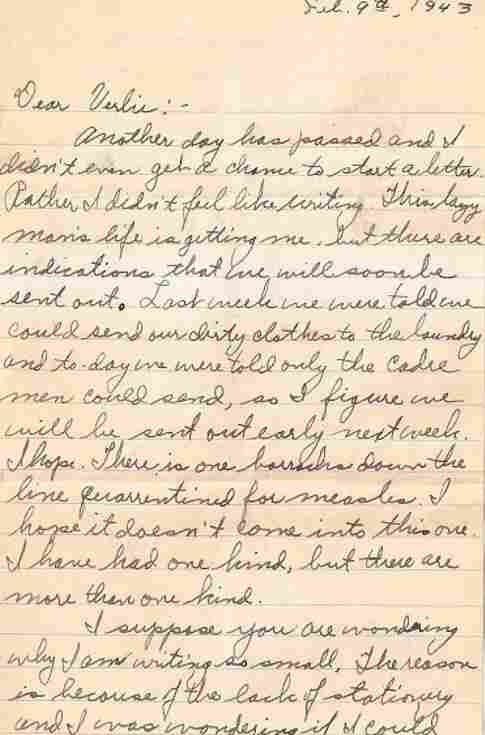 Feb. 9th, 1943
Dear Verlie:-
Another day has passed and I
didn't even get a chance to start a letter.
Rather I didn't feel like writing. This lazy
man's life is getting me, but there are
indications that we will soon be
sent out. Last week we were told we
could send our dirty clothes to the laundry
and to-day we were told only the Cadre
men could send, so I figure we
will be sent out early next week.
I hope. There is one barracks down the
line quarrentined for measles. I
hope it doesn't come into this one.
I have had one kind, but there are
more than one kind.
I suppose you are wondering
why I am writing so small. The reason
is because of the lack of stationery
and I was wondering if I could